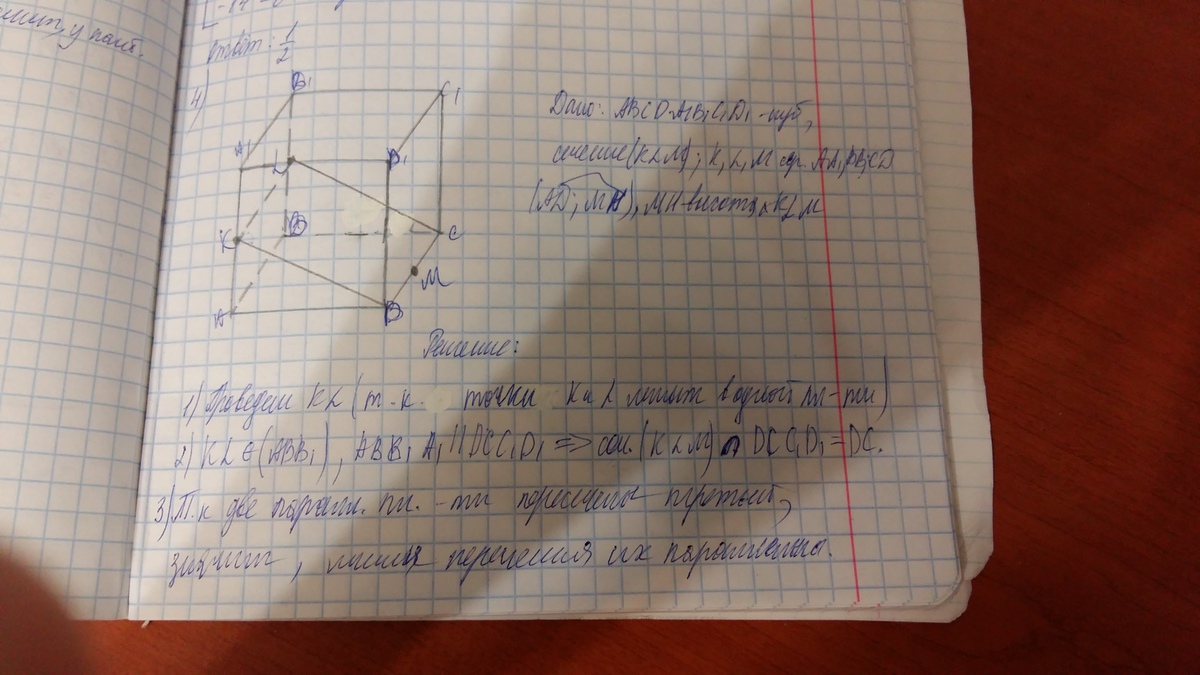 Ответ: 1/2
4)
B1
C1
A1
L
D1
K
B
C
M
A
D
Дано: ABCDA1B1C1D1 - куб,
сечение (KLM); K, L, M сер. AA1, BB1, CD
(AD; MH), MH высота △ KLM
Решение:
1) Проведем KL (т.к. точки K и L лежат в одной пл-ти)
2) KL ∈ (ABB1), ABB1A1 || DCC1D1 => (KLM) ∩ DCC1D1 = DC.
3) Т.к две паралл. пл.-ти пересечены третьей,
значит, линии пересечения их параллельны.